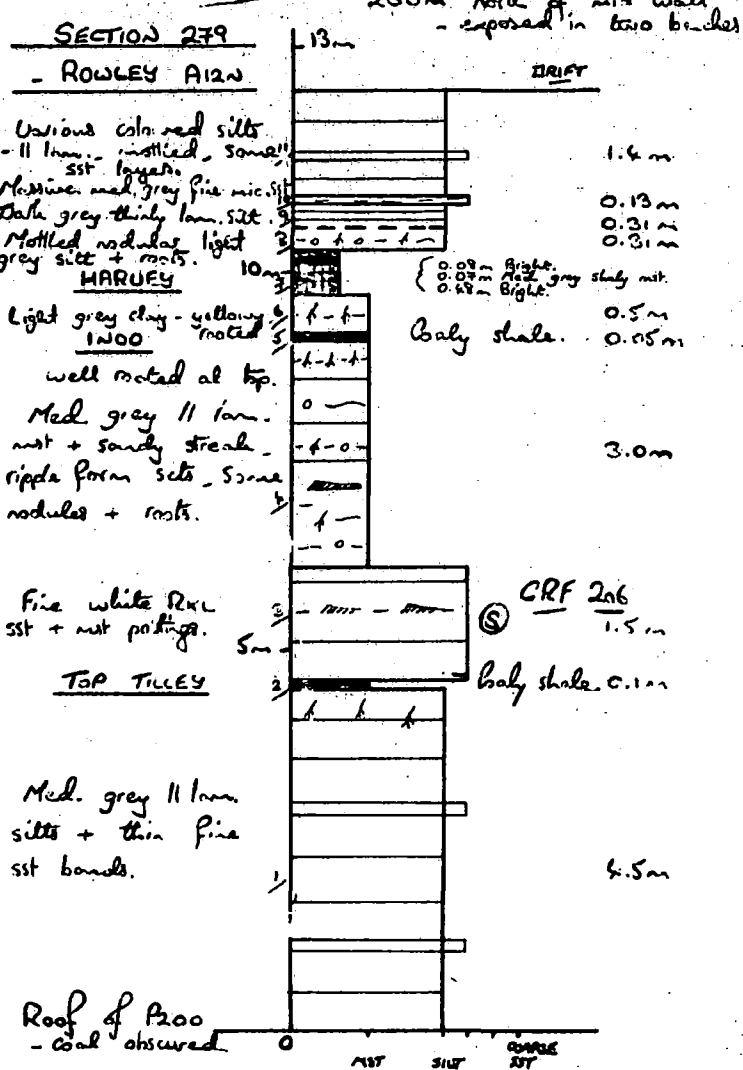 200m North of N13 Wall
- exposed in two benches
SECTION 279
- ROWLEY A12N
13m
DRIFT
Various coloured silts
- 11 lam. - mottled, some
sst layers.
11
1.4 m
Massive med. grey fine mic. sst
0.13m
Dark grey thinly lam. silt.
9
0.31m
Mottled nodular light
grey silt + roots.
8
0.31m
10m
HARVEY
7
0.08m Bright.
0.07m Med. grey shaly mst.
0.48m Bright.
Light grey clay - yellowy
rooted
6
0.5m
INDO
5
Coaly shale. 0.15m
well rooted at top.
Med. grey 11 lam.
mst + sandy streak -
ripple form sets, some
nodules + roots.
4
3.0m
Fine white RXL
sst + mst partings.
3
S
CRF 206
1.5m
5m
TOP TILLEY
2
Coaly shale. 0.1m
Med. grey 11 lam.
silts + thin fine
sst bands.
1
4.5m
Roof of P200
- coal obscured
0
MST SILT COARSE
SST